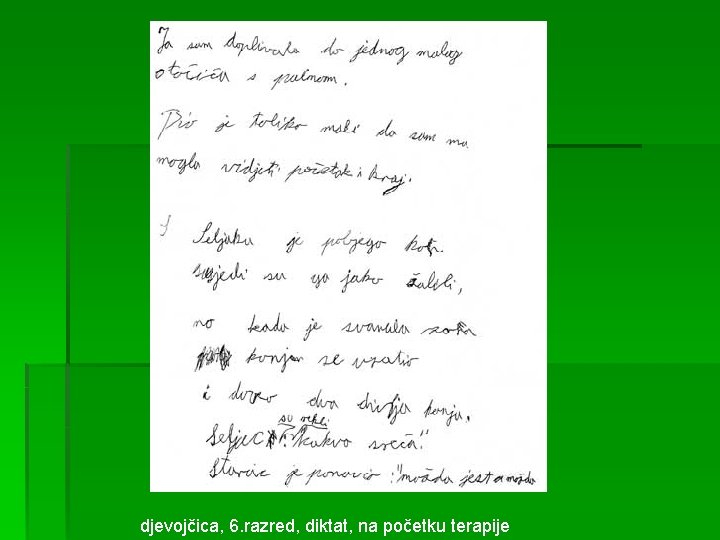 Ja sam doplivala do jednog malog
otočića s palmom.
Bio je toliko mali da sam mu
mogla vidjeti početak i kraj.
Seljaku je pobjego
susjedi su ga jako žalili,
no kada je svanula zora
konj se vratio
i doveo dva divlja konja.
su rekli
Seljec kakvo sreća!"
Starac je ponovio :"možda jest a možda
djevojčica, 6.razred, diktat, na početku terapije